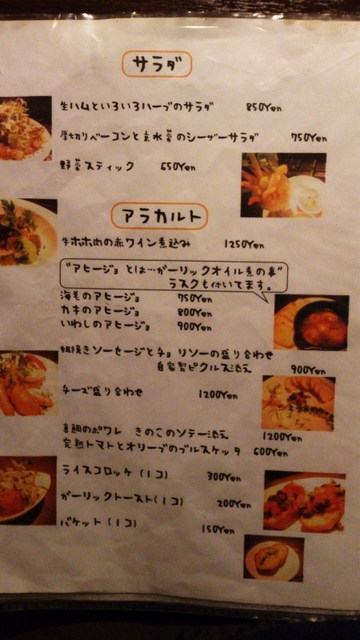 サラダ
生ハムといろいろハーブのサラダ 850Yen
厚切りベーコンと水菜のシーザーサラダ 750Yen
野菜スティック 650Yen
アラカルト
牛ホホ肉の赤ワイン煮込み 1250Yen
"アヒージョ とは…ガーリックオイル煮の事"
ラスクも付いてます。
海老のアヒージョ 750Yen
カキのアヒージョ 800Yen
いわしのアヒージョ 900Yen
粗挽きソーセージとチョリソーの盛り合わせ
自家製ピクルス添え 900Yen
チーズ盛り合わせ 1200Yen
真鯛のポワレ きのこのソテー添え 1200Yen
完熟トマトとオリーブのブルスケッタ 600Yen
ライスコロッケ(1コ) 300Yen
ガーリックトースト(1コ) 200Yen
バケット(1コ) 150Yen